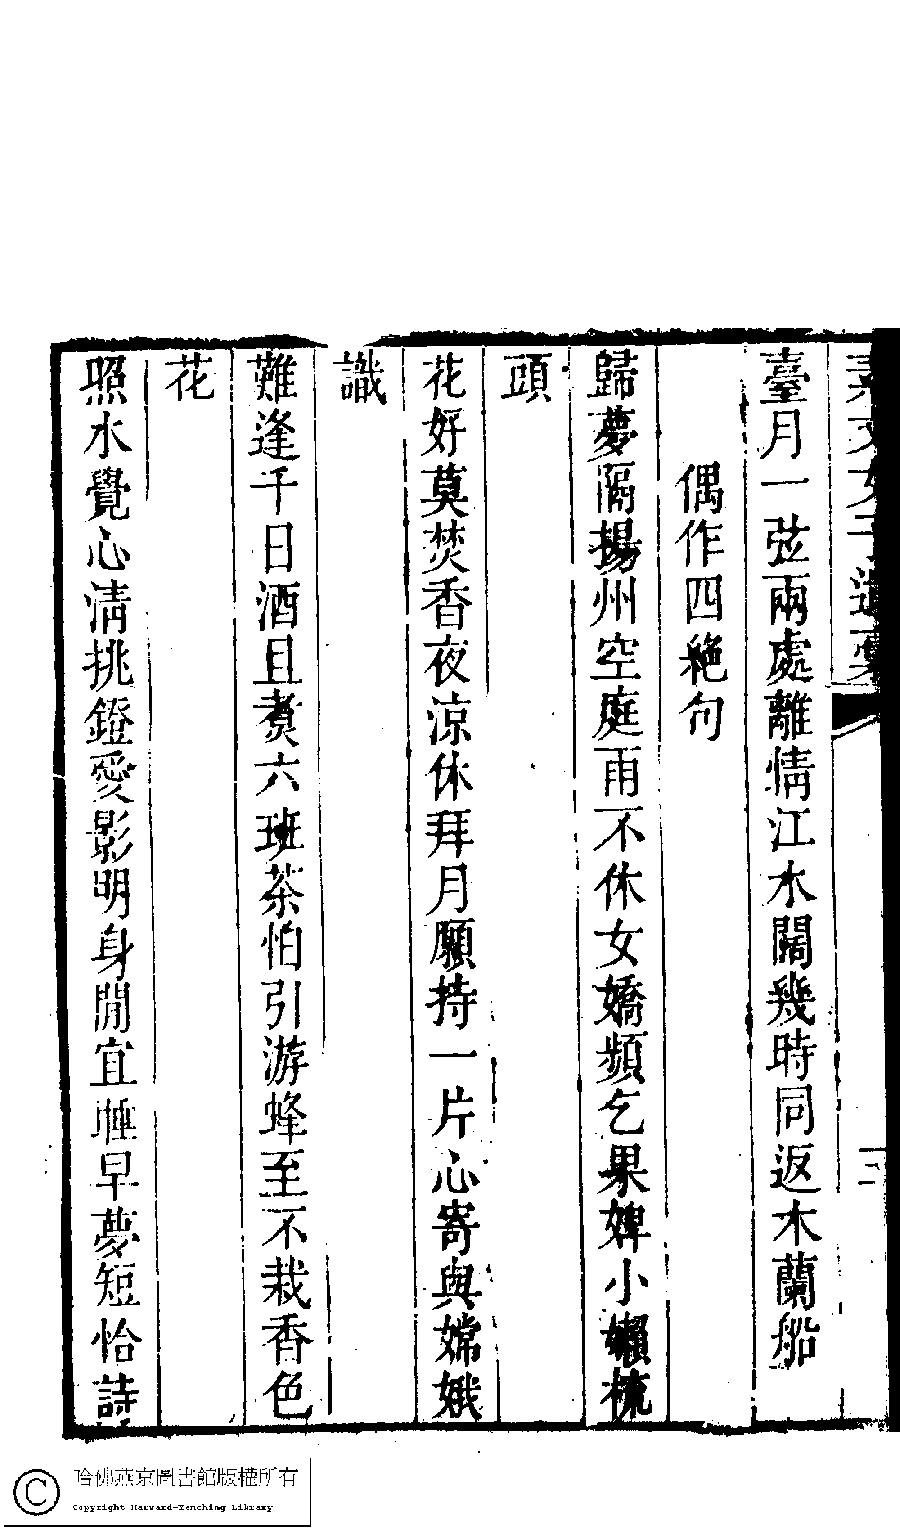 素文女子遺稾
二
臺月一弦兩處離情江水闊幾時同返木蘭船
偶作四絶句
歸夢隔揚州空庭雨不休女嬌頻乞果婢小嬾梳
頭
花好莫焚香夜凉休拜月願持一片心寄與嫦娥
識
難逢千日酒且煑六班茶怕引游蜂至不栽香色
花
照水覺心淸挑鐙愛影明身閒宜睡早夢短恰詩
哈佛燕京圖書館版權所有
Copyright Harvard-Yenching Library